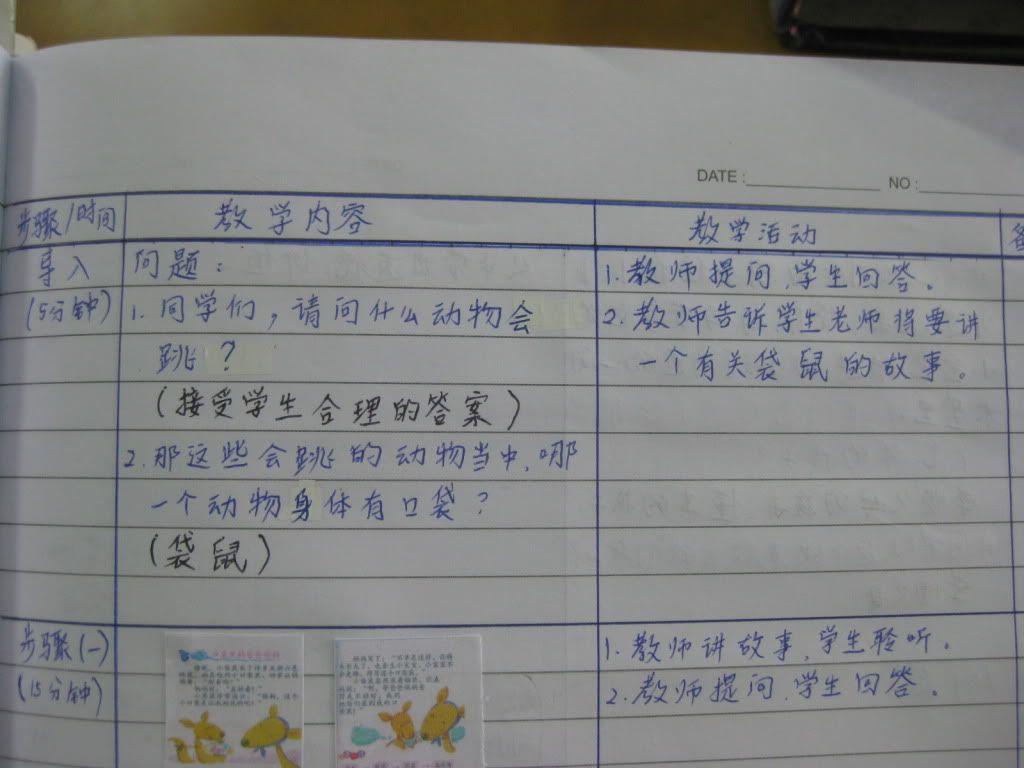 DATE : NO :
步骤/时间 教学内容 教学活动
导入 问题： 1. 教师提问，学生回答。
(5分钟) 1. 同学们，请问什么动物会 2. 教师告诉学生老师将要讲
跳？ 一个有关袋鼠的故事。
（接受学生合理的答案）
2. 那这些会跳的动物当中，哪
一个动物身体有口袋？
（袋鼠）
步骤(一) 1. 教师讲故事，学生聆听。
(15分钟) 2. 教师提问，学生回答。